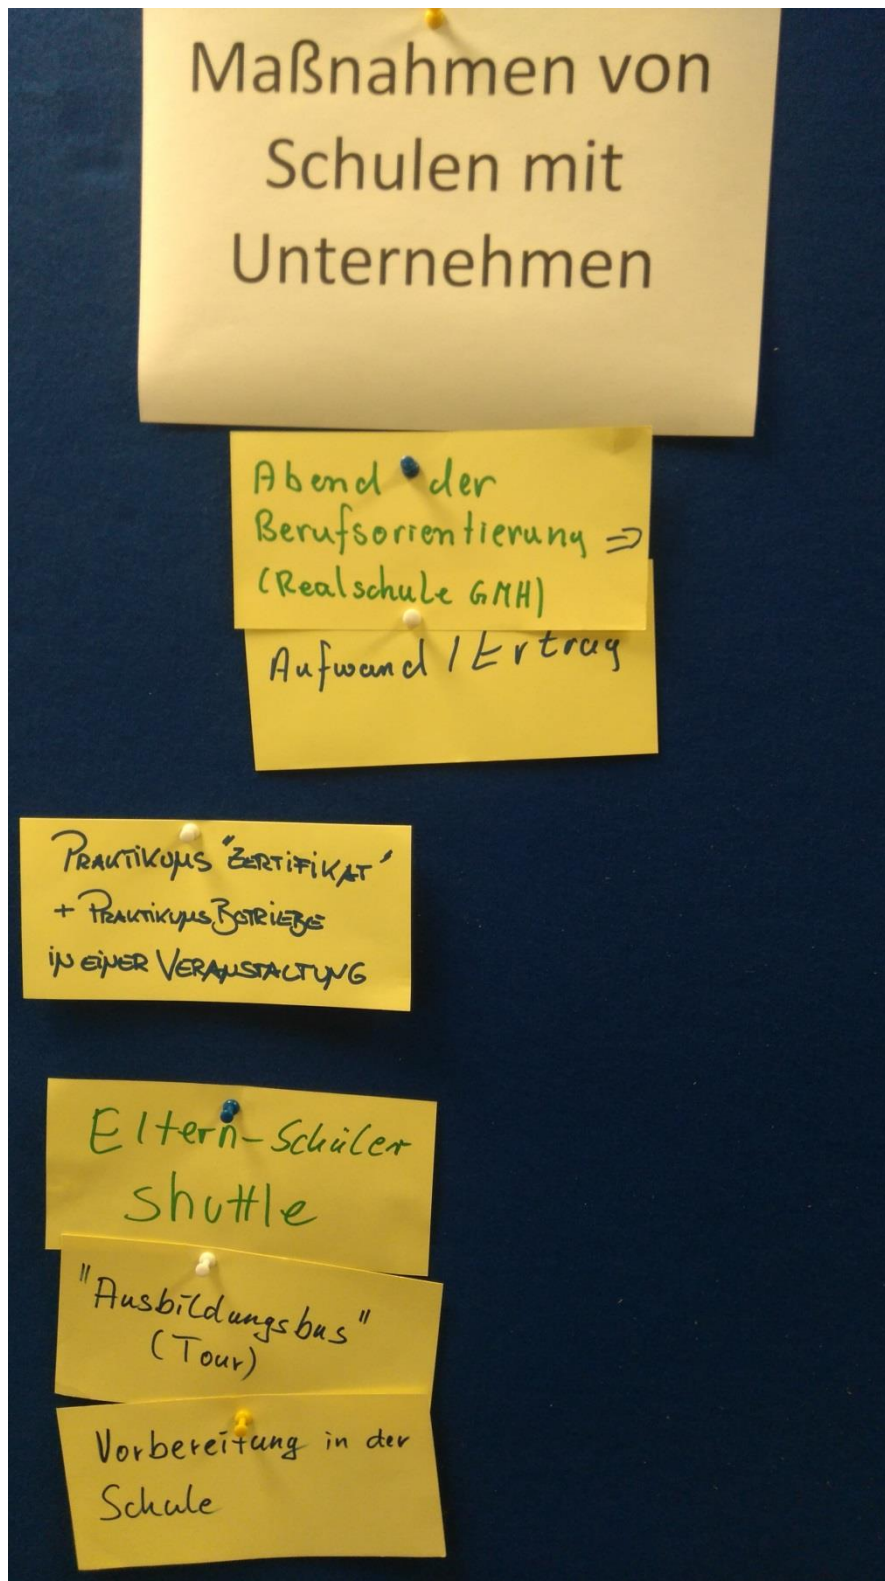 Maßnahmen von
Schulen mit
Unternehmen
Abend der
Berufsorientierung ⇒
(Realschule GMH)
Aufwand / Ertrag
PRAKTIKUMS "ZERTIFIKAT"
+ PRAKTIKUMSBETRIEBE
IN EINER VERANSTALTUNG
Eltern-Schüler
shuttle
"Ausbildungsbus"
(Tour)
Vorbereitung in der
Schule